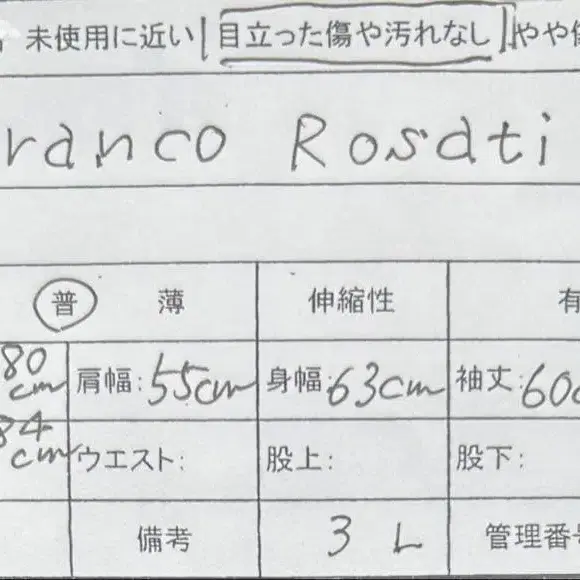 未使用に近い 目立った傷や汚れなし やや
ranco Rosati
普 薄 伸縮性 有
80cm 肩幅:55cm 身幅:63cm 袖丈:60c
84cm ウエスト: 股上: 股下:
備考 3L 管理番